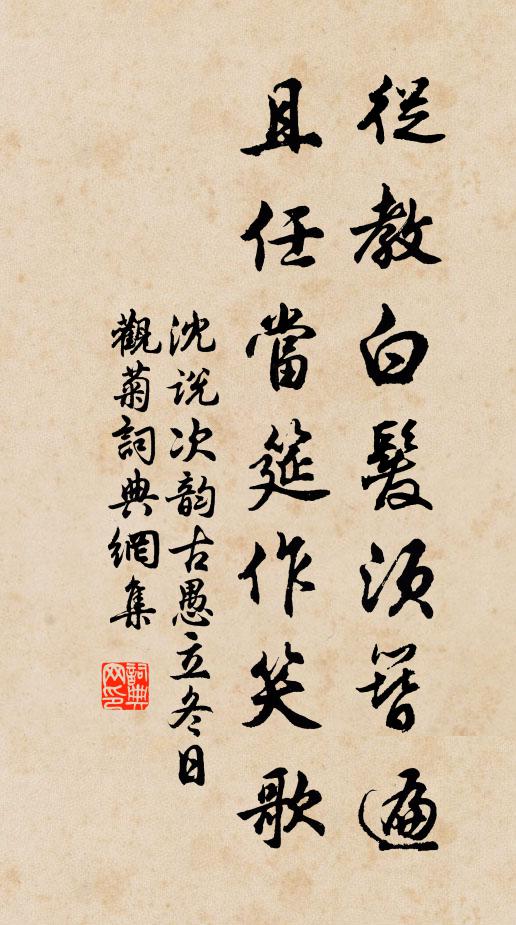 從教白髮須簪遍
且任當筵作笑歌
沈說次韵古愚立冬日
觀菊詞典網集
詞典网印